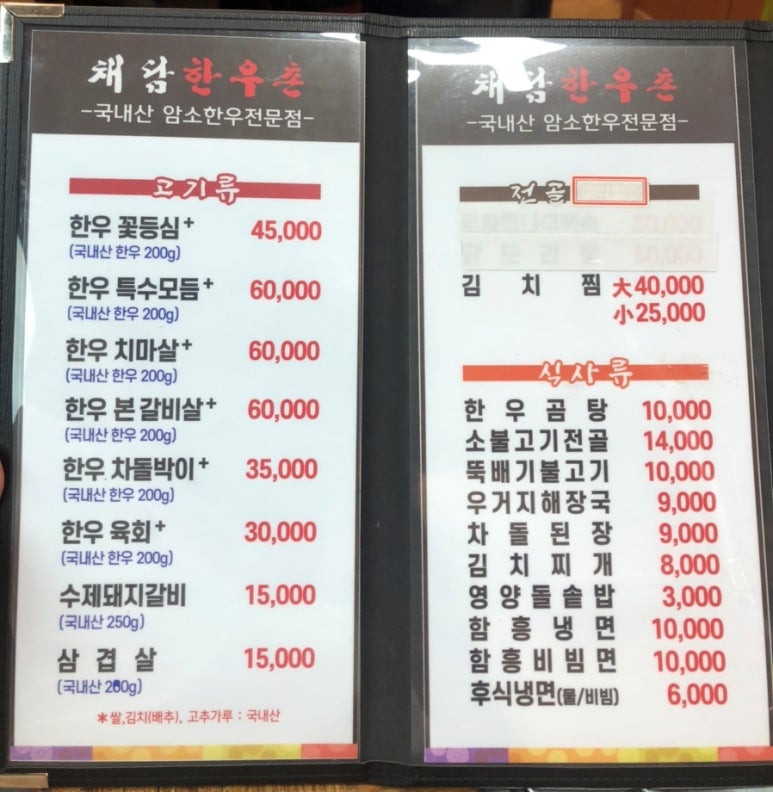 채담한우촌
-국내산 암소한우전문점-
고기류
한우 꽃등심+ 45,000
(국내산 한우 200g)
한우 특수모듬+ 60,000
(국내산 한우 200g)
한우 치마살+ 60,000
(국내산 한우 200g)
한우 본갈비살+ 60,000
(국내산 한우 200g)
한우 차돌박이+ 35,000
(국내산 한우 200g)
한우 육회+ 30,000
(국내산 한우 200g)
수제돼지갈비 15,000
(국내산 250g)
삼겹살 15,000
(국내산 200g)
*쌀,김치(배추), 고추가루 : 국내산
채담한우촌
-국내산 암소한우전문점-
전골
50,000
60,000
김치찜 大40,000
小25,000
식사류
한우곰탕 10,000
소불고기전골 14,000
뚝배기불고기 10,000
우거지해장국 9,000
차돌된장 9,000
김치찌개 8,000
영양돌솥밥 3,000
함흥냉면 10,000
함흥비빔면 10,000
후식냉면(물/비빔) 6,000